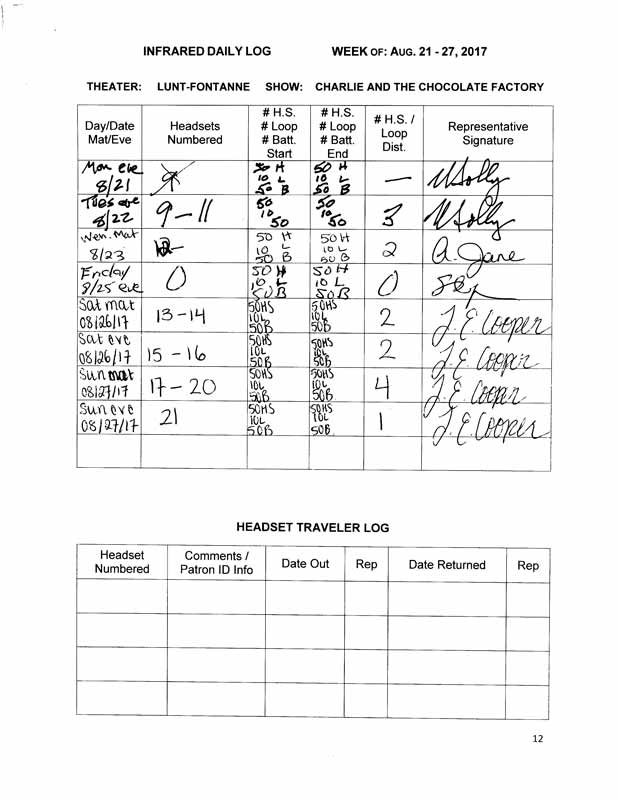 INFRARED DAILY LOG WEEK OF: AUG. 21 - 27, 2017
THEATER: LUNT-FONTANNE SHOW: CHARLIE AND THE CHOCOLATE FACTORY
Day/Date Mat/Eve Headsets Numbered # H.S. # Loop # Batt. Start # H.S. # Loop # Batt. End # H.S. / Loop Dist. Representative Signature
Mon eve 8/21 50 H 10 L 50 B 50 H 10 L 50 B —
Tues eve 8/22 9-11 50 10 50 50 10 50 3
Wen. Mat 8/23 50 H 10 L 50 B 50 H 10 L 50 B 2 A. Jane
Friday 8/25 eve 0 50 H 10 L 50 B 50 H 10 L 50 B 0
Sat mat 08/26/17 13-14 50HS 10L 50B 50HS 10L 50B 2 J. E. Cooper
Sat eve 08/26/17 15-16 50HS 10L 50B 50HS 10L 50B 2 J. E. Cooper
Sun mat 08/27/17 17-20 50HS 10L 50B 50HS 10L 50B 4 J. E. Cooper
Sun eve 08/27/17 21 50HS 10L 50B 50HS 10L 50B 1 J. E. Cooper
HEADSET TRAVELER LOG
Headset Numbered Comments / Patron ID Info Date Out Rep Date Returned Rep
12